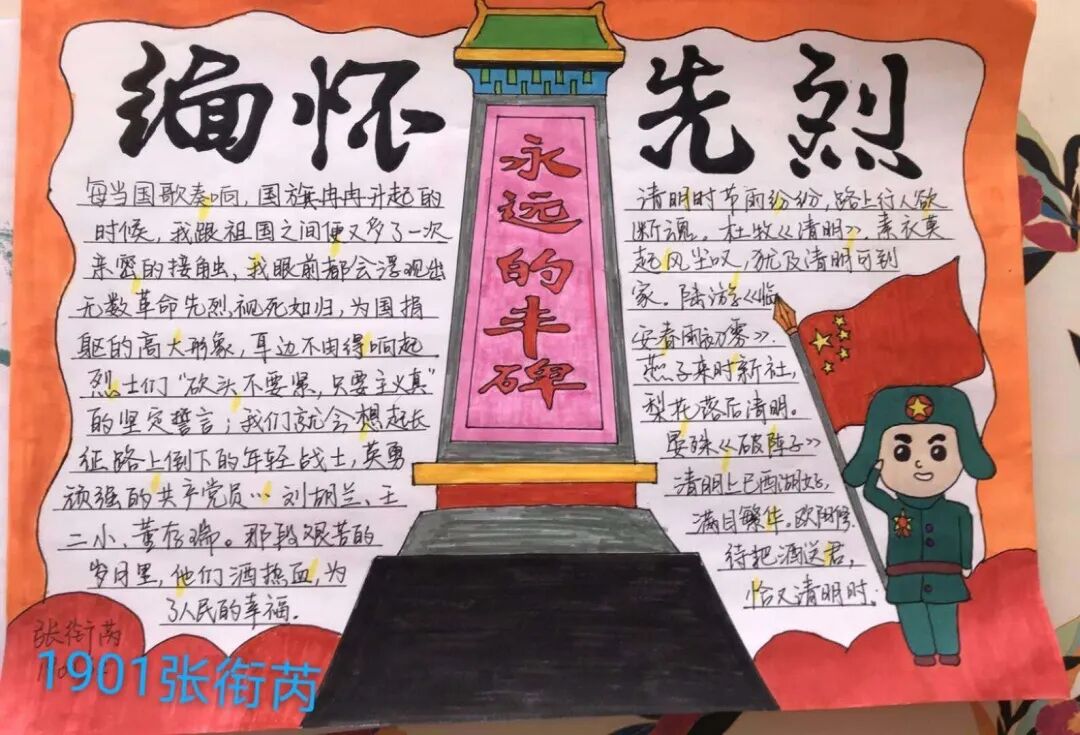 缅怀先烈
永远的丰碑
每当国歌奏响，国旗冉冉升起的
时候，我跟祖国之间便又多了一次
亲密的接触，我眼前都会浮现出
无数革命先烈，视死如归，为国捐
躯的高大形象，耳边不由得响起
烈士们“砍头不要紧，只要主义真”
的坚定誓言；我们就会想起长
征路上倒下的年轻战士，英勇
顽强的共产党员…刘胡兰、王
二小、董存瑞。那段艰苦的
岁月里，他们洒热血，为
了人民的幸福。
清明时节雨纷纷，路上行人欲
断魂，杜牧《清明》，素衣莫
起风尘叹，犹及清明可到
家。陆游《临
安春雨初霁》.
燕子来时新社，
梨花落后清明。
晏殊《破阵子》
清明上巳西湖好，
满目繁华。欧阳修.
待把酒送君，
恰又清明时.
张衔芮
1901张衔芮